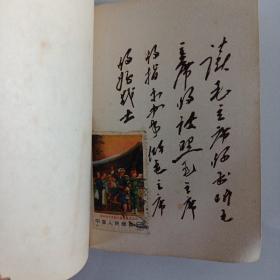 读毛主席的书听毛
主席的话照毛主席
的指示办事做毛主席
的好战士
中国人民邮政